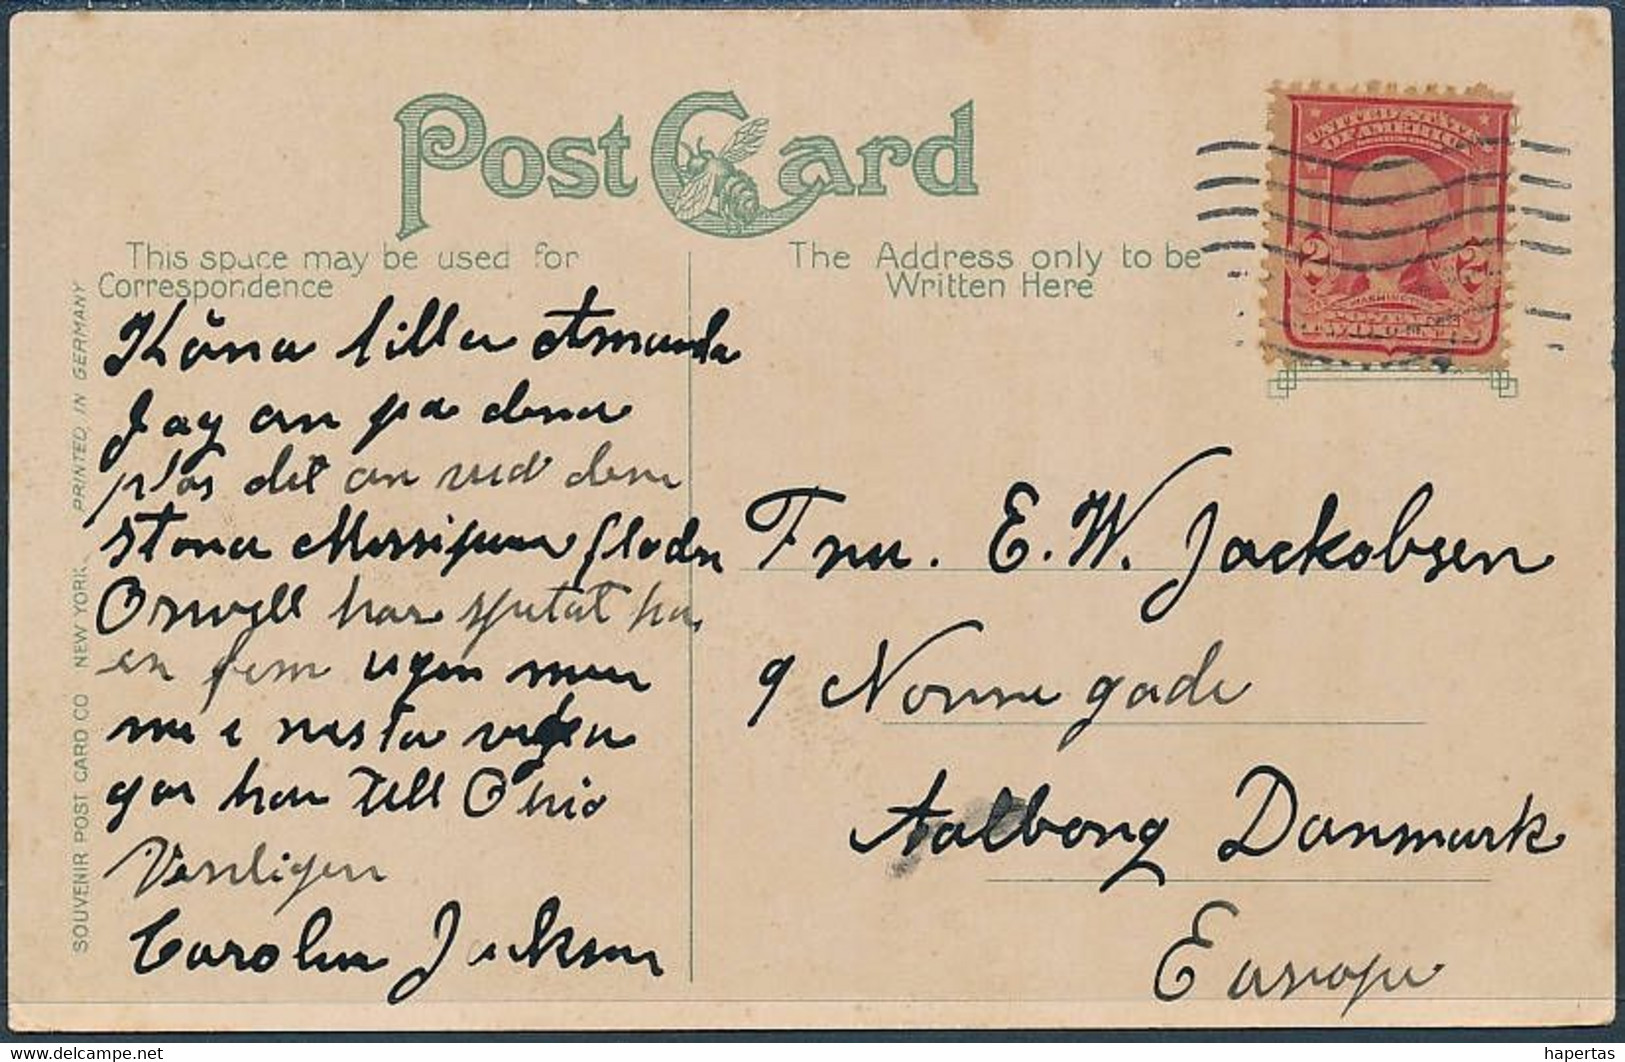 Post Card
This space may be used for
Correspondence
The Address only to be
Written Here
UNITED STATES
OF AMERICA
2 2
WASHINGTON
SOUVENIR POST CARD CO NEW YORK PRINTED IN GERMANY
Kära lilla Amanda
Jag är på dena
plas det är vid den
stora Mississippi floden
Orwell har spelat här
en fem ugor men
nu i nesta vecka
går han till Ohio
Vänligen
Carolin Jackson
Fru. E. W. Jackobsen
9 Nonnegade
Aalborg Danmark
Europe
www.delcampe.net
hapertas